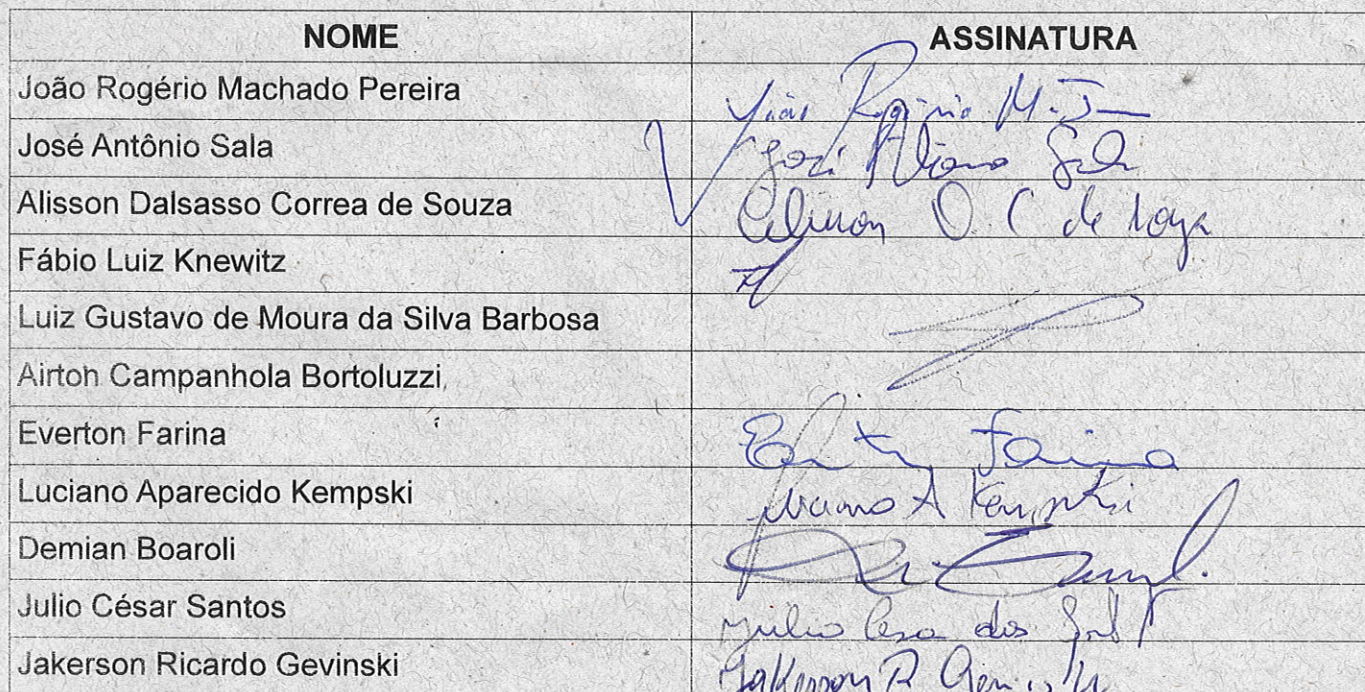 NOME ASSINATURA
João Rogério Machado Pereira João Rogério M.
José Antônio Sala José Sala
Alisson Dalsasso Correa de Souza Alisson D. C de Souza
Fábio Luiz Knewitz
Luiz Gustavo de Moura da Silva Barbosa
Airton Campanhola Bortoluzzi,
Everton Farina Farina
Luciano Aparecido Kempski Luciano A Kempski
Demian Boaroli
Julio César Santos Julio Cesar dos
Jakerson Ricardo Gevinski Jakerson R